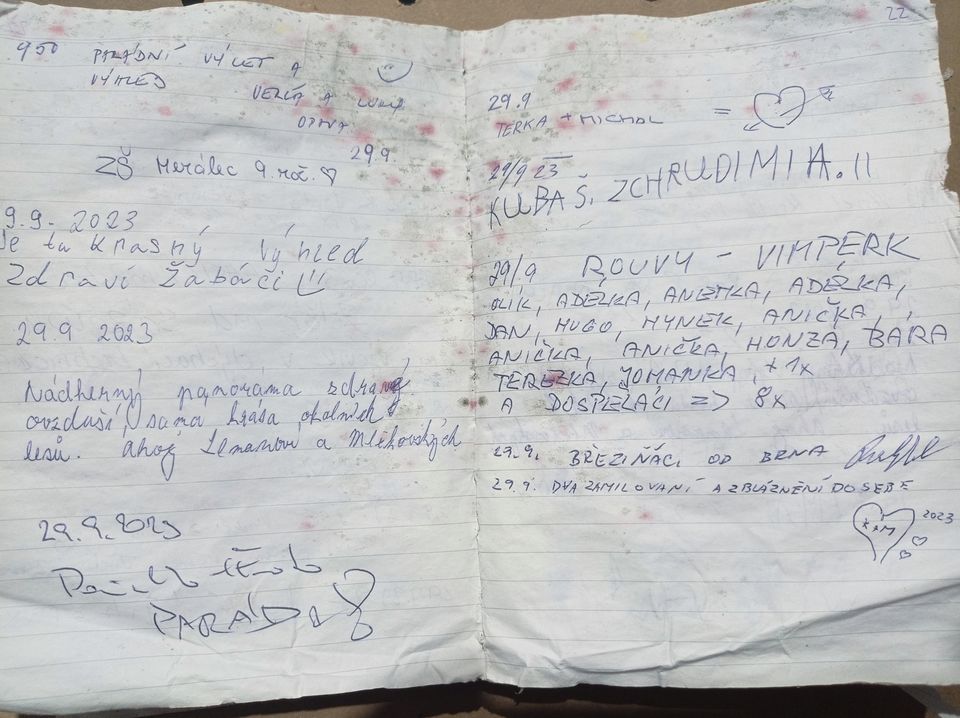 9 50 PARÁDNÍ VÝLET A
VÝHLED
VERČA A
OPAVA
29.9.
ZŠ Herálec 9. roč. ♡
9.9. 2023
Je tu krasný výhled
Zdraví Žabáci
29.9 2023
Nádherný panoráma zdravé
ovzduší, sama krása okolních
lesů. Ahoj a
29.9.2023
PARÁDA
22
29.9
TERKA + MICHAL =
29/9 23
KUBA Š. Z CHRUDIMI A. II
29/9 ROUVY - VIMPERK
OLÍK, ADÉLKA, ANETKA, ADÉLKA,
DAN, HUGO, HYNEK, ANIČKA,
ANIČKA, ANIČKA, HONZA, BÁRA
TEREZKA, JOHANKA, + 1x
A DOSPĚLÁCI => 8x
29.9. BŘEZIŇÁCI OD BRNA
29.9. DVA ZAMILOVANÍ A ZBLÁZNĚNÍ DO SEBE
K + M 2023